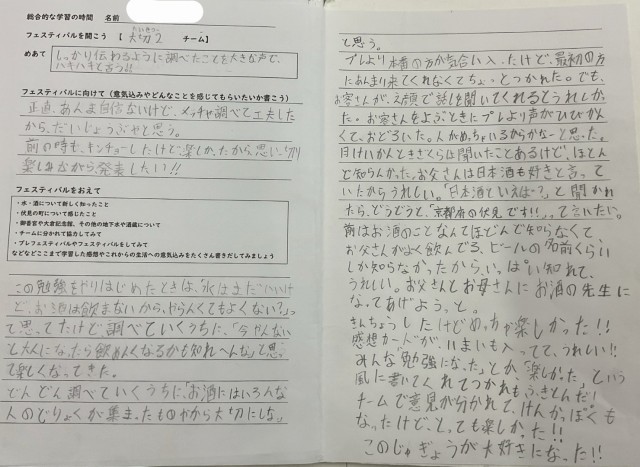 総合的な学習の時間　名前
フェスティバルを開く【 大切2 チーム】
たいせつ
めあて
しっかり伝わるように調べたことを大きな声で、
ハキハキと言う!!
フェスティバルに向けて（意気込みやどんなことを感じてもらいたいか書こう）
正直、あんま自信ないけど、メッチャ調べて工夫した
から、だいじょうぶやと思う。
前の時も、キンチョーしたけど楽しかったから、思いっ切り
楽しみながら発表したい!!
フェスティバルをおえて
・水・酒について新しく知ったこと
・伏見の町について感じたこと
・御香宮や大倉記念館、その他の地下水や酒蔵について
・チームに分かれて協力してみて
・プレフェスティバルやフェスティバルをしてみて
などなどここまで学習した感想やこれからの生活への意気込みをたくさん書きだしてみましょう
この勉強をやりはじめたときは、「水はまだいいけ
ど、お酒は飲まないから、やらんくてもよくない？」っ
て思ってたけど調べていくうちに、「今やんない
と大人になったら飲めんくなるかも知れへんな」と思っ
て楽しくなってきた。
どんどん調べていくうちに、「お酒にはいろんな
人のどりょくが集まったものやから大切にしな」
と思う。
プレより本番の方が気合い入ったけど、最初の方
にあんまり来てくれなくてちょっとつかれた。でも、
お客さんが、え顔で話しを聞いてくれるとうれしかっ
た。お客さんをよぶときにプレより声がひびかん
くて、おどろいた。人がめっちゃいるからかなーと思った。
月けいかんときざくらは聞いたことあるけど、ほとん
ど知らんかった。お父さんは日本酒も好きと言って
いたからうれしい。「日本酒といえば〜？」と聞かれ
たら、どうどうと、「京都府の伏見です!!」って言いたい。
前はお酒のことなんてほどんど知らなくて、
お父さんがよく飲んでる、ビールの名前くらい
しか知らなかったから、いっぱい知れて、
うれしい。お父さんとお母さんにお酒の先生に
なってあげようっと。
きんちょうしたけどめっちゃ楽しかった!!
感想カードが、いまいも入ってて、うれしい!!
みんな「勉強になった」とか「楽しかった」という
風に書いてくれてつかれもふきとんだ!
チームで意見が分かれて、けんかっぽくも
なったけど、とっても楽しかった!!
このじゅぎょうが大好きになった!!